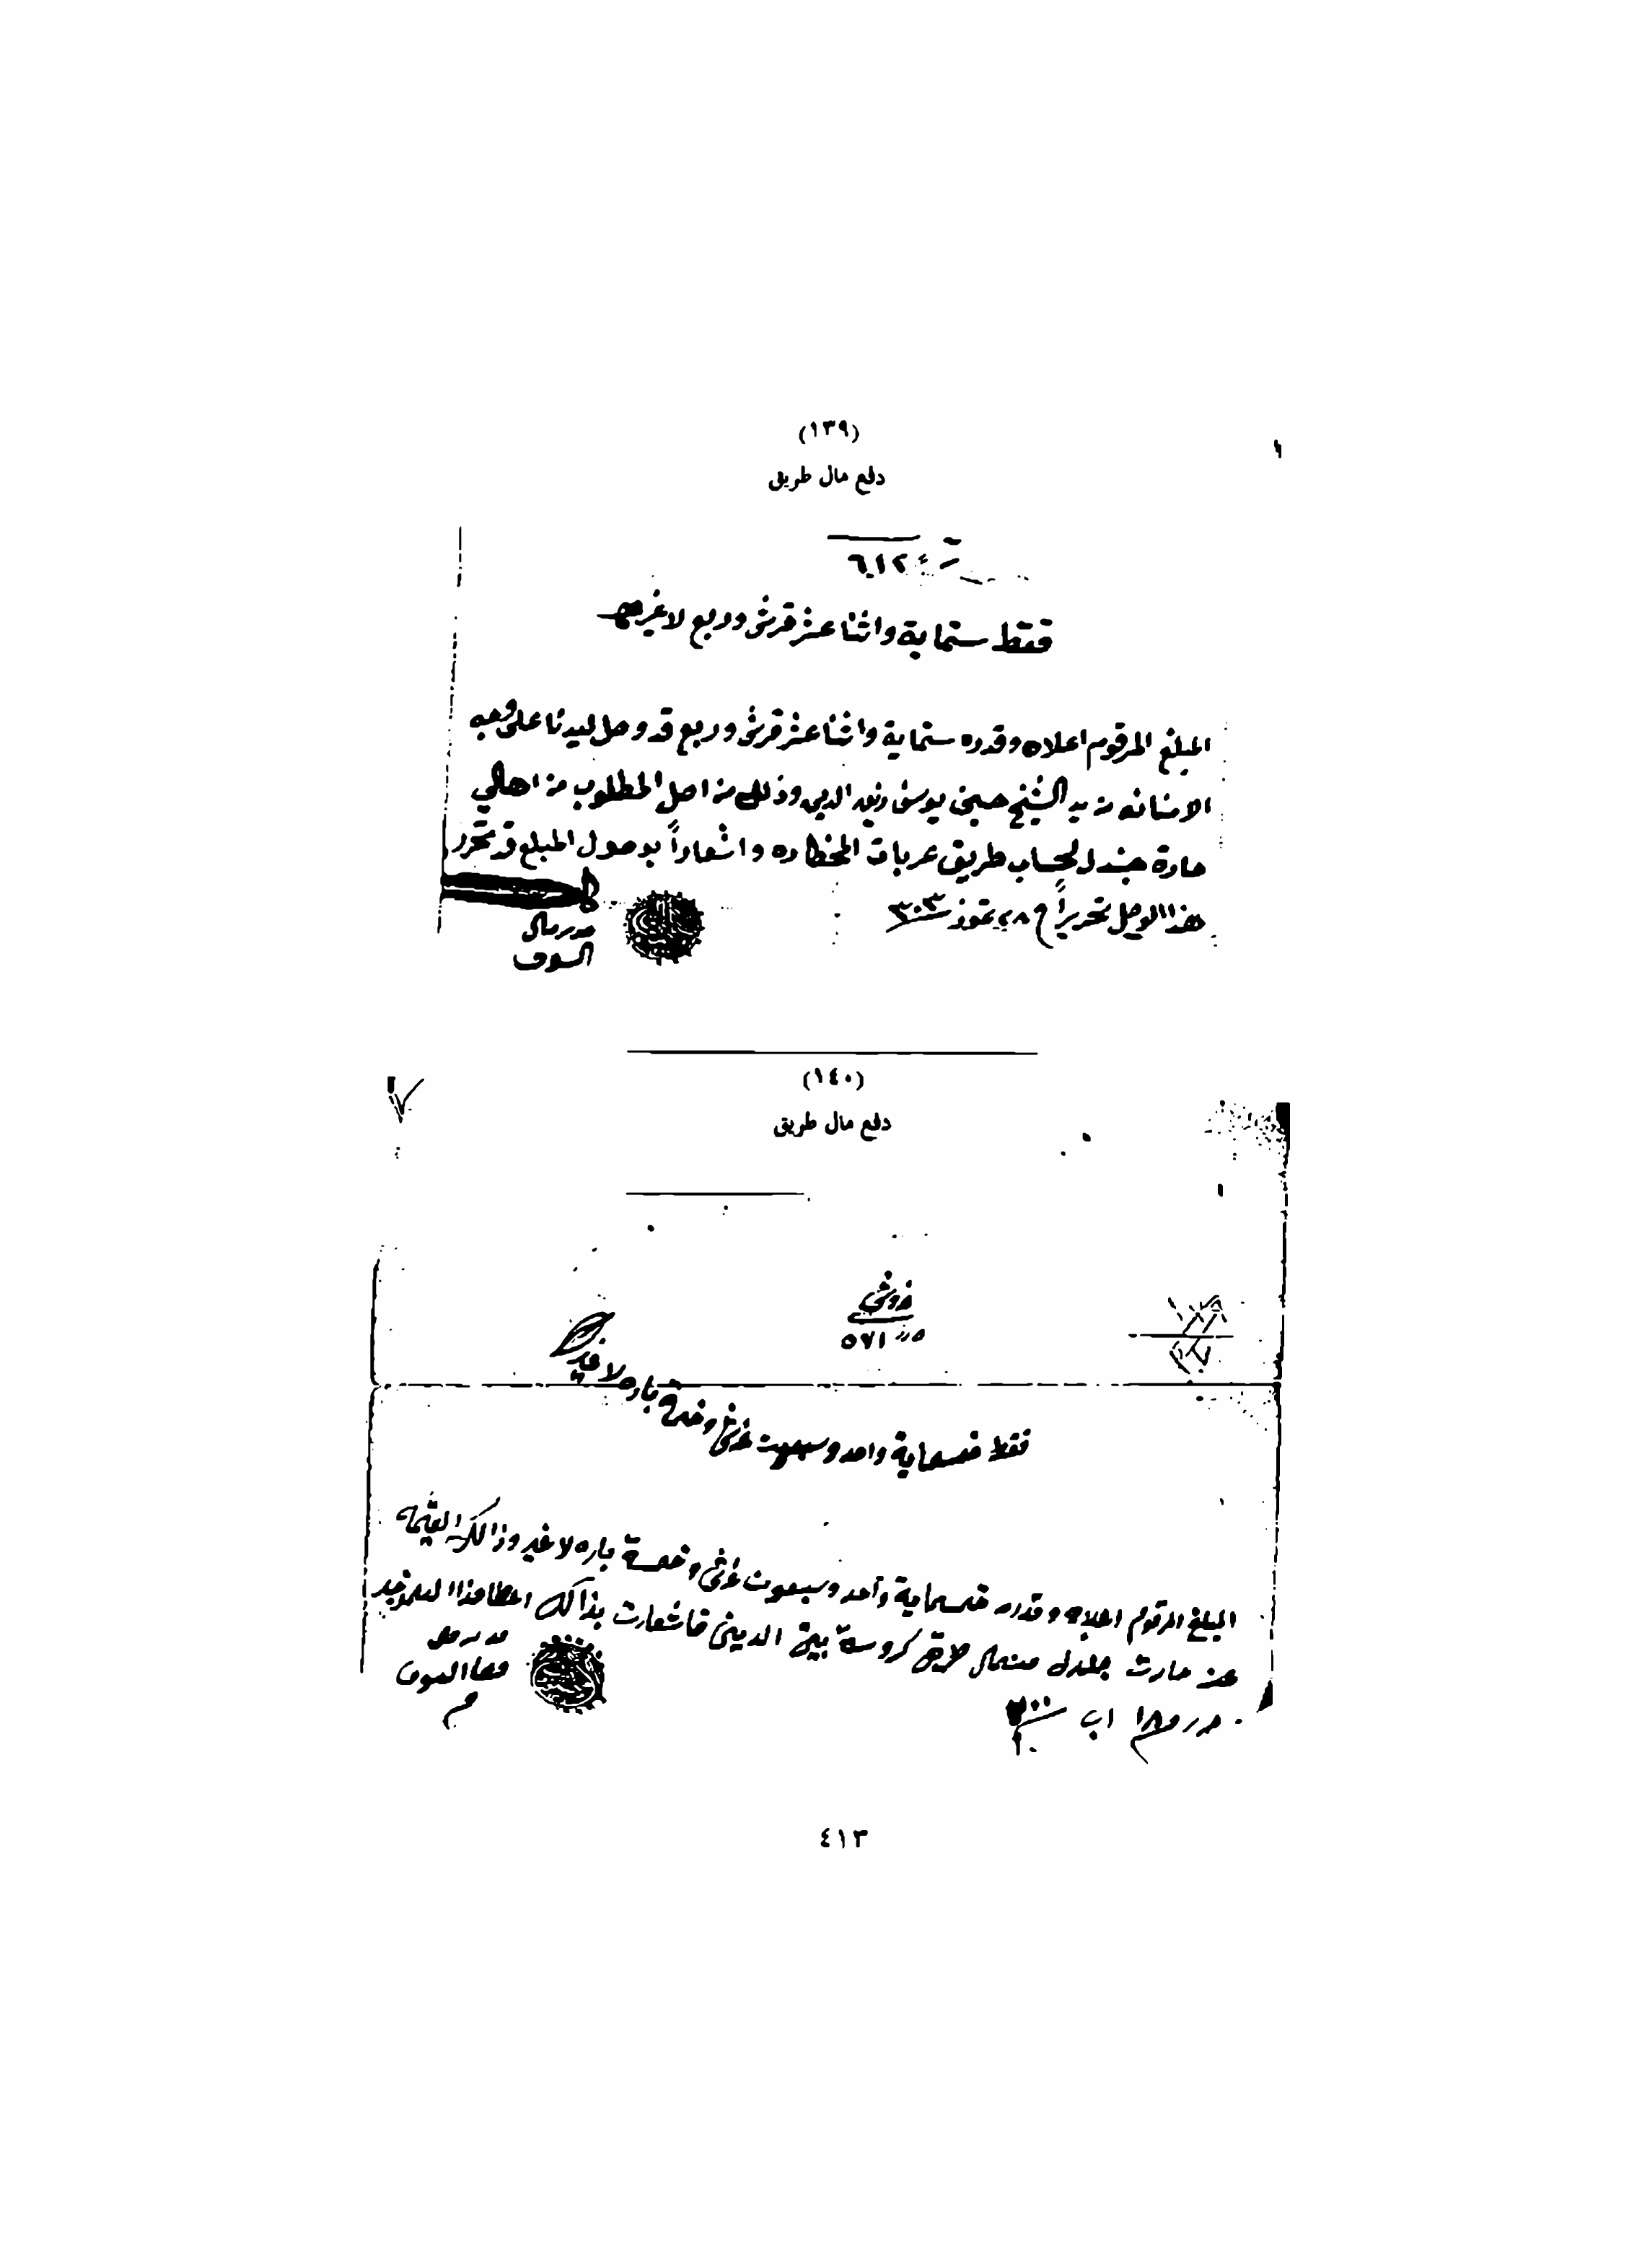 (١٣٩)
دفع مال طريق
٦١٢
فقط ستماية واثنا عشر قرش وربع لا غير
المبلغ المرقوم اعلاه وقدره ستماية واثنا عشر قرش وربع قد وصل ليدنا على وجه
الامانه من يد الشيخ حسين يوسف زين الدين وذلك من اصل المطلوب من اهالي
حارة جندل لحساب طريق عربات المخطاره واشعاراً بوصول المبلغ قد تحرر
هذا الوصل تحريراً في ٢٨ تموز سنة ٣٠٣
مدير مال
الشوف
(١٤٠)
دفع مال طريق
غروش
٥٧١
فقط خمسماية واحد وسبعون غرش وخمسة باره لا غير
المبلغ المرقوم اعلاه وقدره خمسماية واحد وسبعون غرش وخمسة باره لا غير وذالك القيمه
عن حارت جندل من مال طريق كروسة بيت الدين فاشعارت بذالك اعطا هذا
مدير مال
قضا الشوف
حرر في ١٨ اب سنة
٤١٣